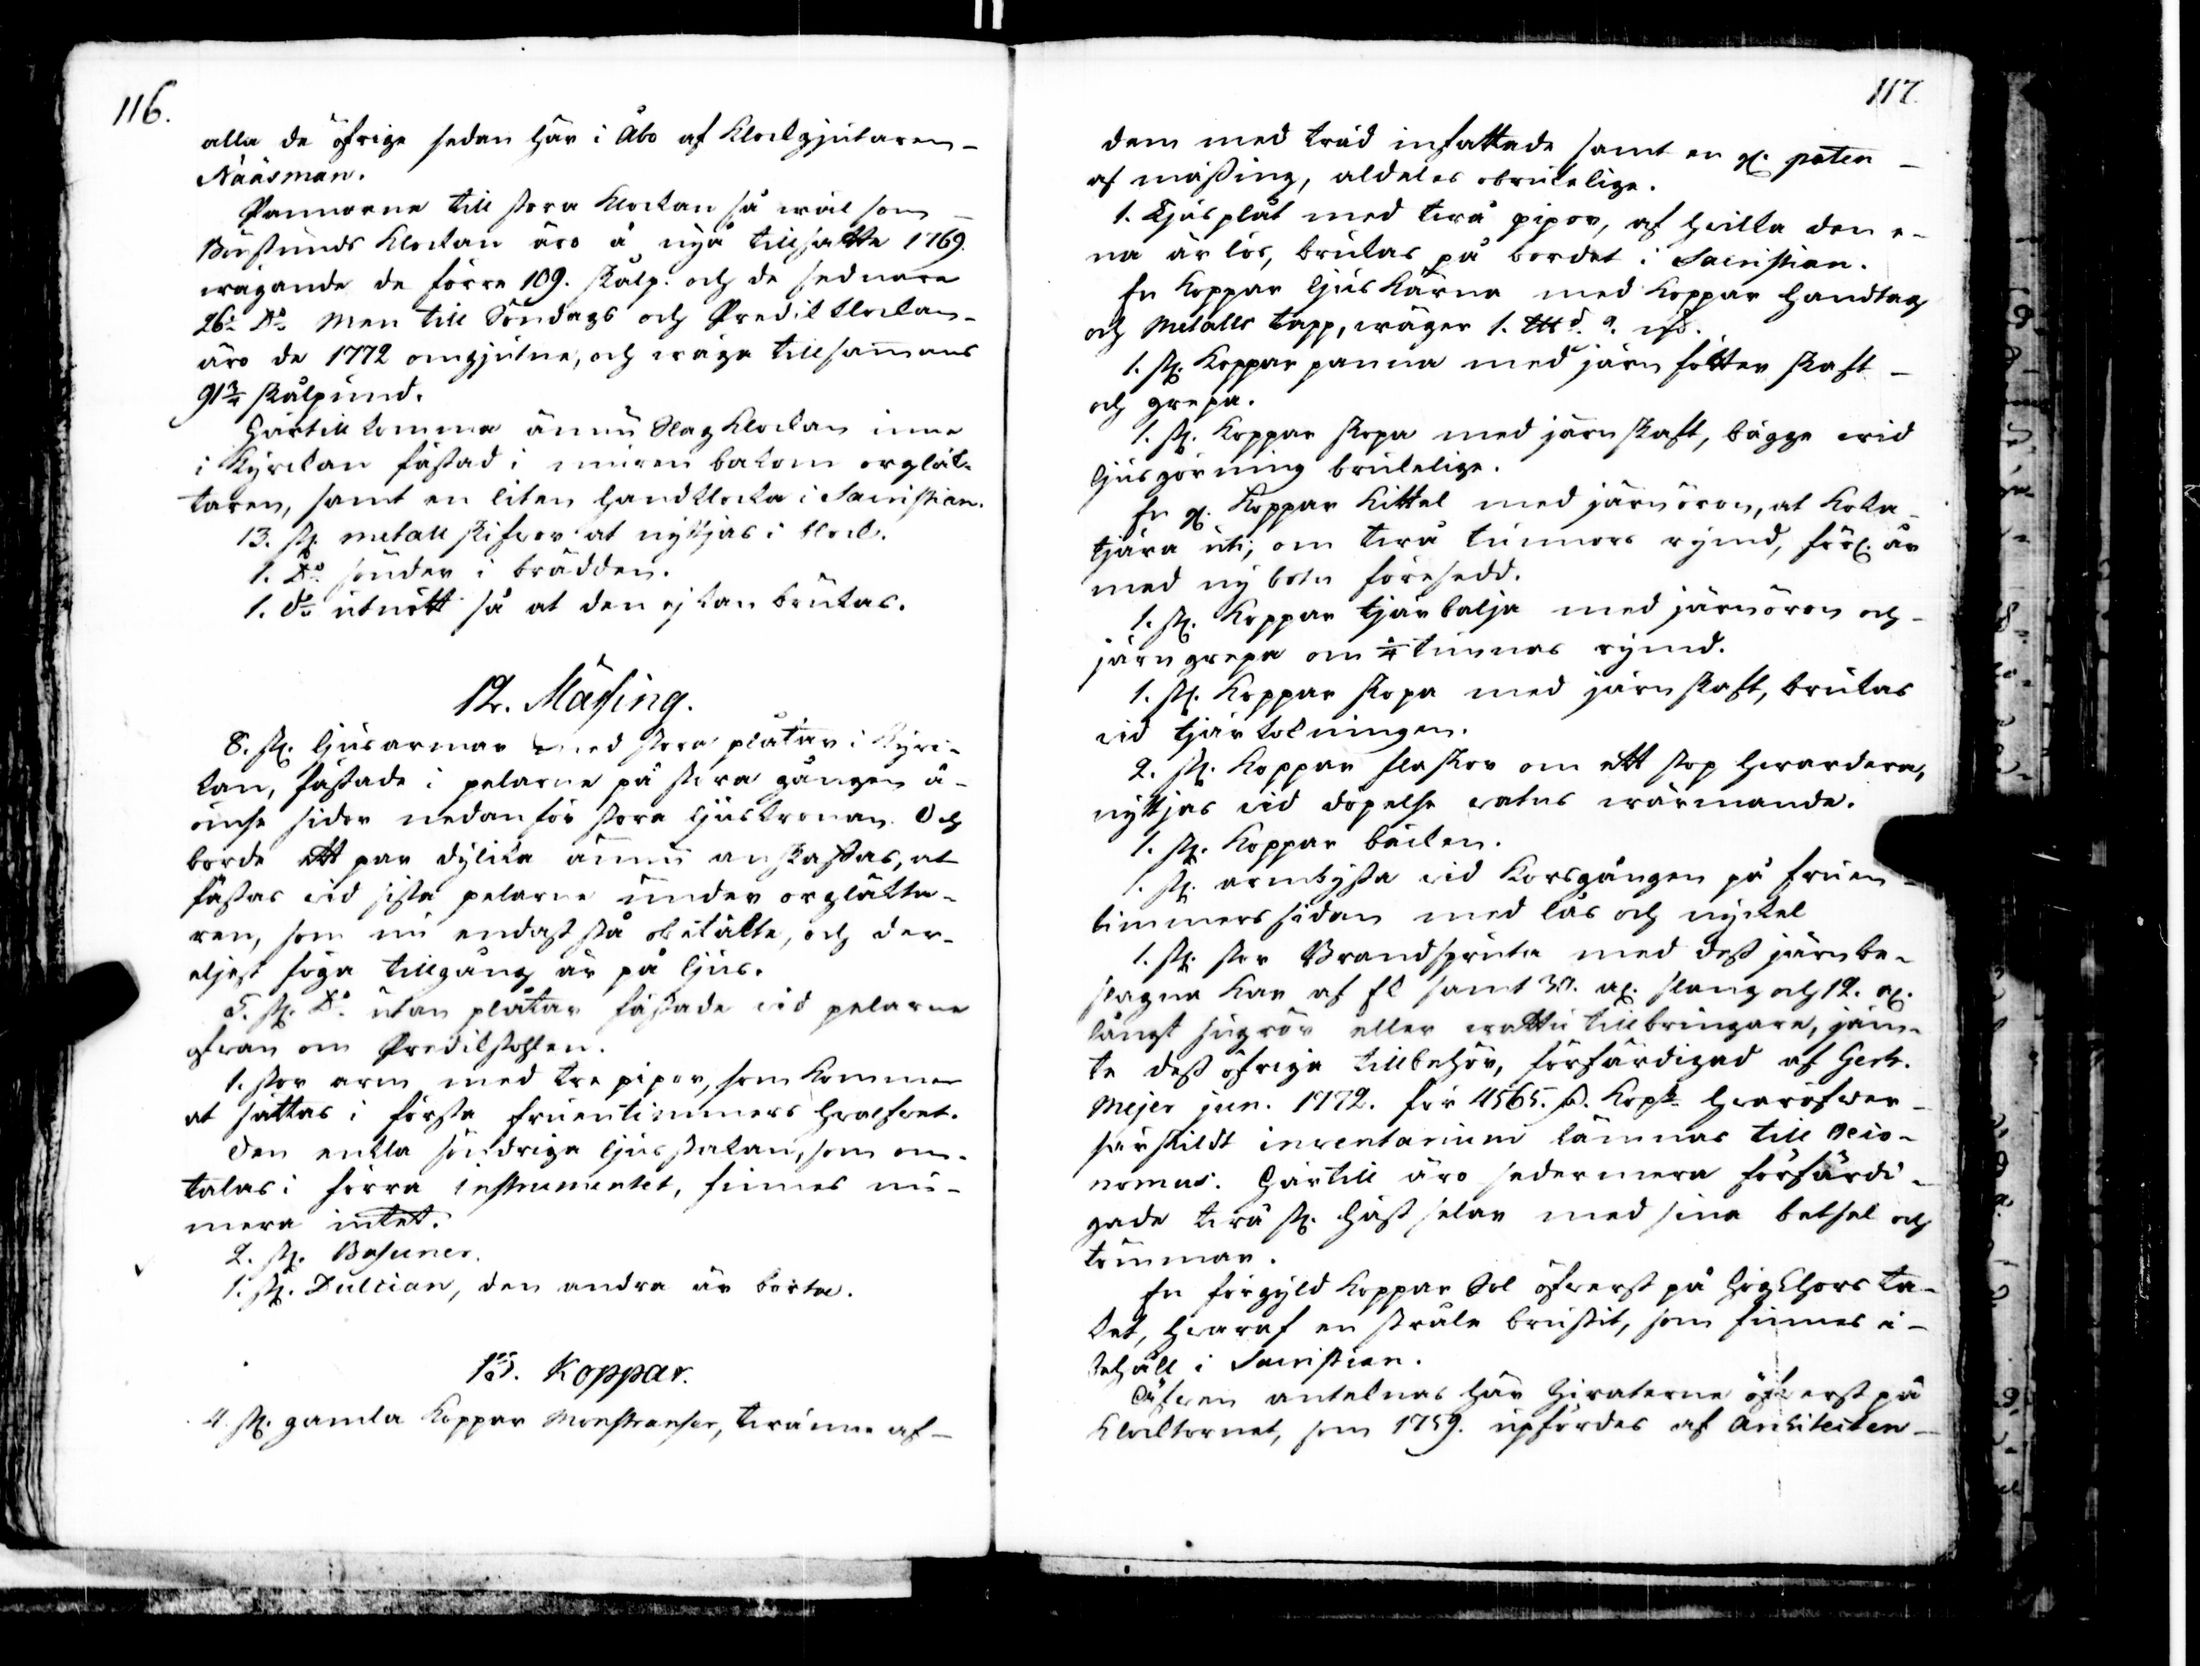 116.
alla de öfrige sedan här i Åbo af Klockgjutaren
Nääsman.
Pannorne till stora klockan så wäl som
Klockan äro å nyo tillsatte 1769.
wägande de förre 109. skålp. och de sednare
26 Dº Men till Söndags och Predik klockan
äro de 1772 omgjutne, och wäga tillsammans
91 3/4 skålpund.
Härtill komma ännu Slag Klockan inne
i Kyrckan fästad i muren bakom orgläk-
taren, samt en liten handklocka i Sacristian.
13. st. metall skifwor at nyttjas i block.
1. Dº sönder i brädden.
1. dº utnött så at den ej kan brukas.
12. Mässing.
8. st. ljusarmar med stora plåtar i Kyrc-
kan, fästade i pelarne på stora gången å
ömse sidor nedanför stora ljuskronan. Och
borde ett par dylika ännu anskaffas, at
fästas wid sista pelarne under orgläkta-
ren, som nu endast stå obitälte, och der-
eljest föga tillgång är på ljus.
5. st. Dº utan plåtar fästade wid pelarne
ofwan om Predikstohlen.
1. stor arm med tre pipor, som kommer
at sättas i första fruentimmers hwalfwet.
Den enkla söndriga ljusstakan, som om-
talas i förra instrumentet, finnes nu-
mera intet.
2. st. Basuner.
1. st. Dulcian, den andra är borta.
13. Koppar.
4 st. gamla koppar Monstranser, twänne af
117.
dem med tråd infattade samt en gl. paten
af mässing, aldeles obrukelige.
1. Ljusplåt med twå pipor, af hwilka den e-
na är lös, brukas på bordet i Sacristian.
En koppar ljuskärna med koppar handtag
och Metalls tapp, wäger 1.
1. st. Koppar panna med järn fötter skaft
och grepa.
1. st. Koppar skopa med järn skaft, bägge wid
ljusgörning brukelige.
En gl. Koppar kittel med järnöron, at koka
tjära uti, om twå tunnors rymd, är
med ny botn försedd.
1. st. Koppar tjärbalja med järnöron och
järn grepa om 1/4 tunnas rymd.
1. st. Koppar skopa med järn skaft, brukas
wid tjärkokningen.
2. st. Koppar flaskor om ett stop hwardera,
nyttjas wid döpelse watns wärmande.
1. st. Koppar bäcken.
1. st. armbyssa wid Korsgången på fruen-
timmerssidan med lås och nyckel
1. st. stor Brandspruta med dess järnbe-
slagna kar af samt 30. al. slang och 12. al.
långt sugrör eller wattu tillbringare, jäm-
te dess öfriga tillbehör, förfärdigad af Gerh.
Mejer jun. 1772. för 4565. D. Kopt. Hwaröfwer
särskildt inventarium lämnas till Oeco-
nomus. Härtill äro sedermera förfärdi-
gade twå st. hästselar med sina betsel och
tömmar.
En förgyld koppar Sol öfwerst på högChors ta-
ket, hwaraf en stråle brustit, som finnes i
behåll i Sacristian.
Äfwen anteknas här Ziraterne öfwerst på
klocktornet, som 1759. upfördes af Architecten